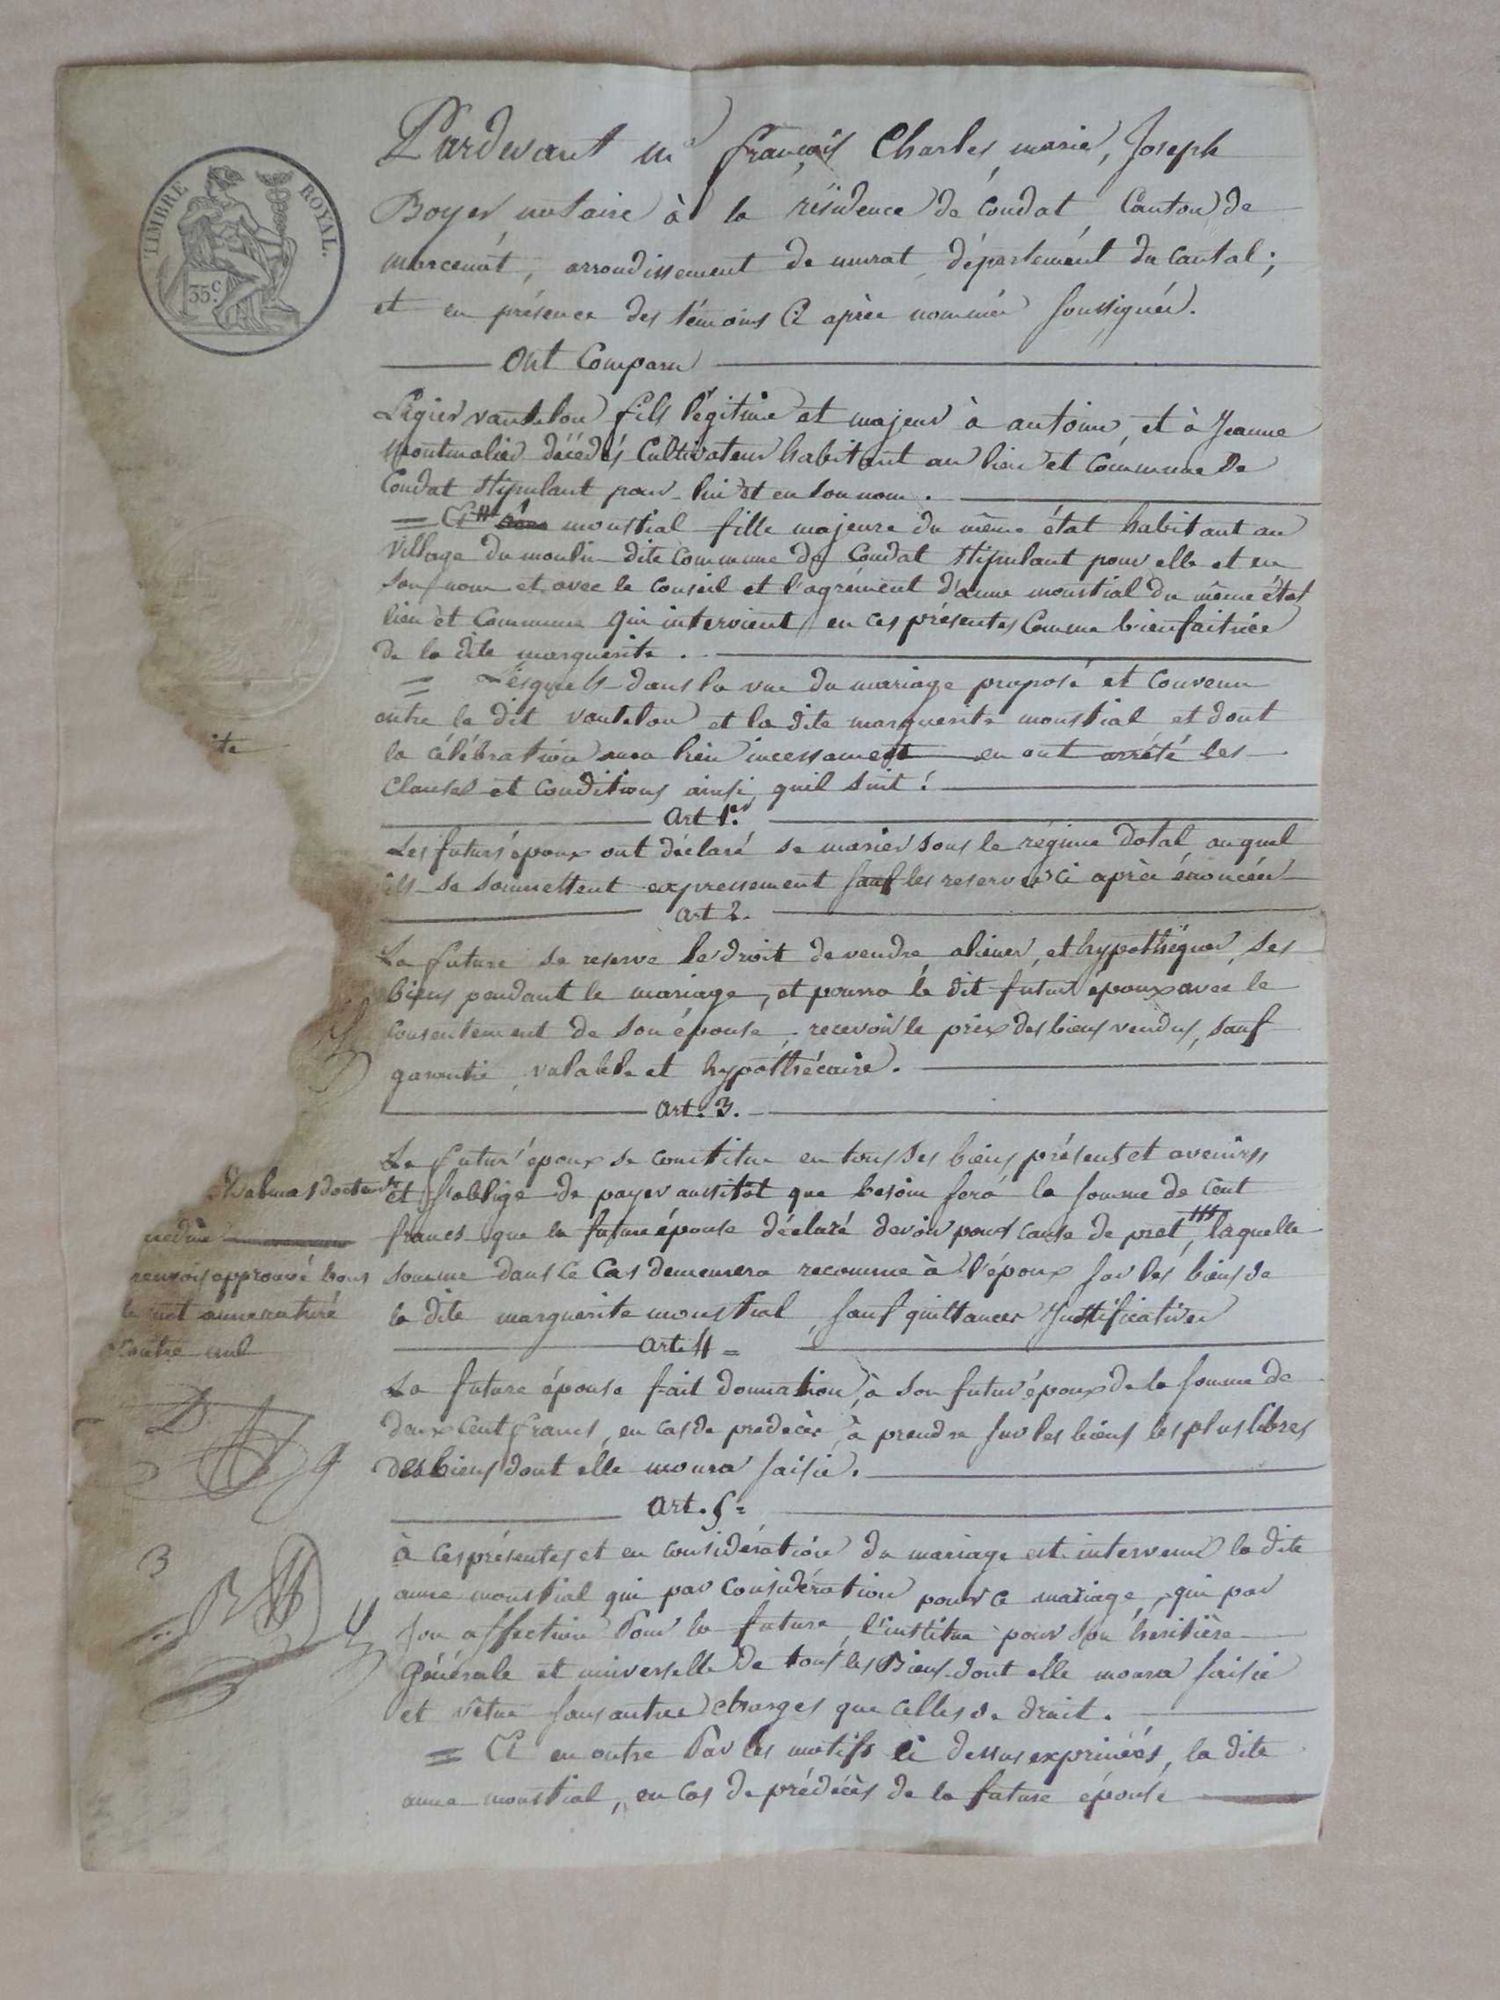 TIMBRE ROYAL.
35c
Pardevant me françois Charles, marie, Joseph
Boyer notaire à la résidence de Condat Canton de
marcenat, arrondissement de murat, département du Cantal;
et en présence des témoins Ci après nommés soussignés.
Ont Comparu
Ligier vantelou fils légitime et majeur à antoine, et à Jeanne
Montmalier décédés Cultivateur habitant au lieu et Commune de
Condat stipulant pour lui et en son nom.
= Et moustial fille majeure du même état habitant au
village du moulin dite commune de Condat stipulant pour elle et en
son nom et avec le conseil et l'agrément d'anne moustial du même état
lieu et Commune qui intervient en ces présentes Comme bienfaitrice
de la dite marguerite.
= Lesquels dans la vue du mariage proposé et convenu
entre le dit vantelou et la dite marguerite moustial et dont
ite
la célébration aura lieu incessament en ont arrêté les
Clauses et conditions ainsi quil suit:
Art 1er
Les futurs époux ont déclaré se marier sous le régime Dotal auquel
ils se soumettent expressement sauf les reserves Ci après énoncées
art 2.
La future se reserve le droit de vendre, aliener, et hypothéquer, ses
biens pendant le mariage, et pourra le dit futur epoux avec le
Consentement de son épouse, recevoir le prix des biens vendus, sauf
garantie, valable et hypothécaire.
Art. 3.
Le futur époux se constitue en tous ses biens présents et avenirs
Dalmas docteur
et s'oblige de payer aussitot que besoin sera la somme de cent
francs que la future épouse déclare devoir pour cause de pret, laquelle
renvoi approuvé bon
somme dans ce Cas demeurera reconnue à l'époux sur les biens de
le mot
la dite marguerite moustial, sauf quittances Justificatives
nul
Art. 4 =
La future épouse fait donnation, à son futur époux de la somme de
deux cent francs, en cas de prédécès, à prendre sur les biens les plus libres
des biens dont elle moura saisie.
Art. 5 =
à ces présentes et en considération du mariage est intervenue la dite
anne moustial qui par Considération pour ce mariage, qui par
son affection Pour la future, l'institue pour son héritière
Générale et universelle de tous les Biens dont elle moura saisie
et vêtue sans autre charges que celles de droit.
= Et en outre Par les motifs ci dessus exprimés, la dite
anne moustial, en cas de prédécès de la future épouse